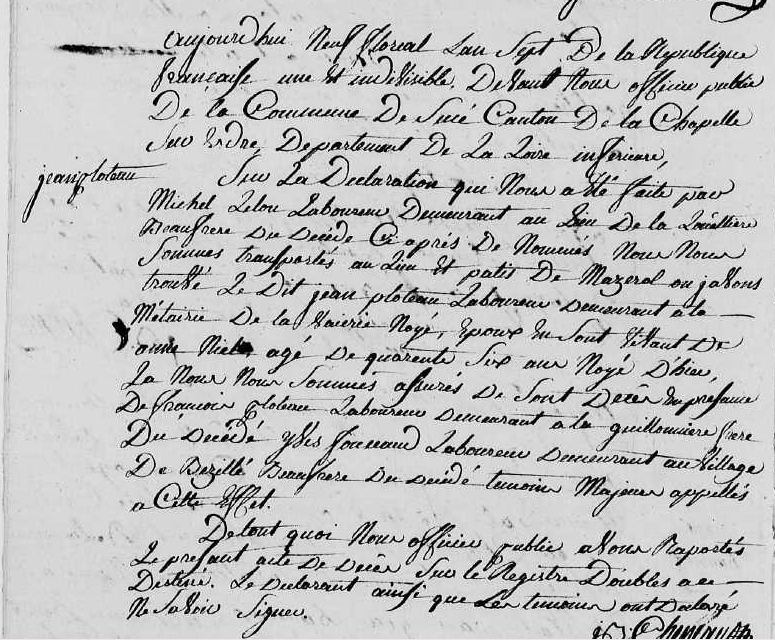 aujourd'hui Neuf floreal Lan Sept De la Republique
francaise une et indivisible, Devant Nous officier public
De la Commune De Sucé Canton De la Chapelle
Sur Erdre, Departement De La Loire inferieure,
jean ploteau
Sur La Declaration qui Nous a été faite par
Michel Lelou Laboureur Demeurant au Lieu De la
Beaufrere Du Décédé Ci aprés De Nommés Nous Nous
Sommes transportés au Lieu et patis De Mazerol ou javons
trouvé Le Dit jean ploteau Laboureur Demeurant a la
Métairie De la Noyé, Epoux En Sont Vivant De
anne agé De quarente Six ans Noyé D'hier,
La Nous Nous Sommes assurés De Sont Décès En présance
De francois ploteau Laboureur Demeurant a la guillonniere frere
Du Décédé yves Laboureur Demeurant au Village
De Beaufrere Du Décédé temoins Majeurs appellés
a Cette Effet.
De tout quoi Nous officier public avons Raportés
Le présant acte De Décès Sur le Registre Doubles a ce
Destiné. Le Declarant ainsi que Les temoins ont Declaré
Ne Savoir Signer.